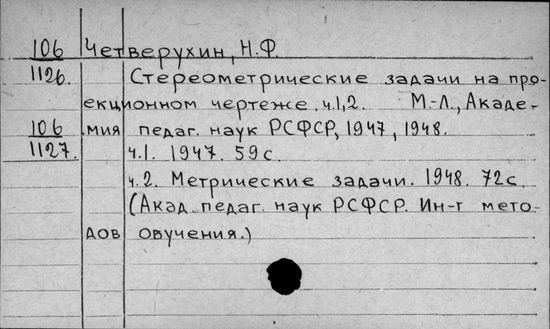 106 Четверухин, Н.Ф.
1126. Стереометрические задачи на про-
екционном чертеже. ч.1,2. М.-Л., Академ-
106 мия педаг. наук РСФСР, 1947, 1948.
1127. ч.1. 1947. 59с.
ч.2. Метрические задачи. 1948. 72с.
(Акад. педаг. наук РСФСР. Ин-т мето-
дов обучения.)